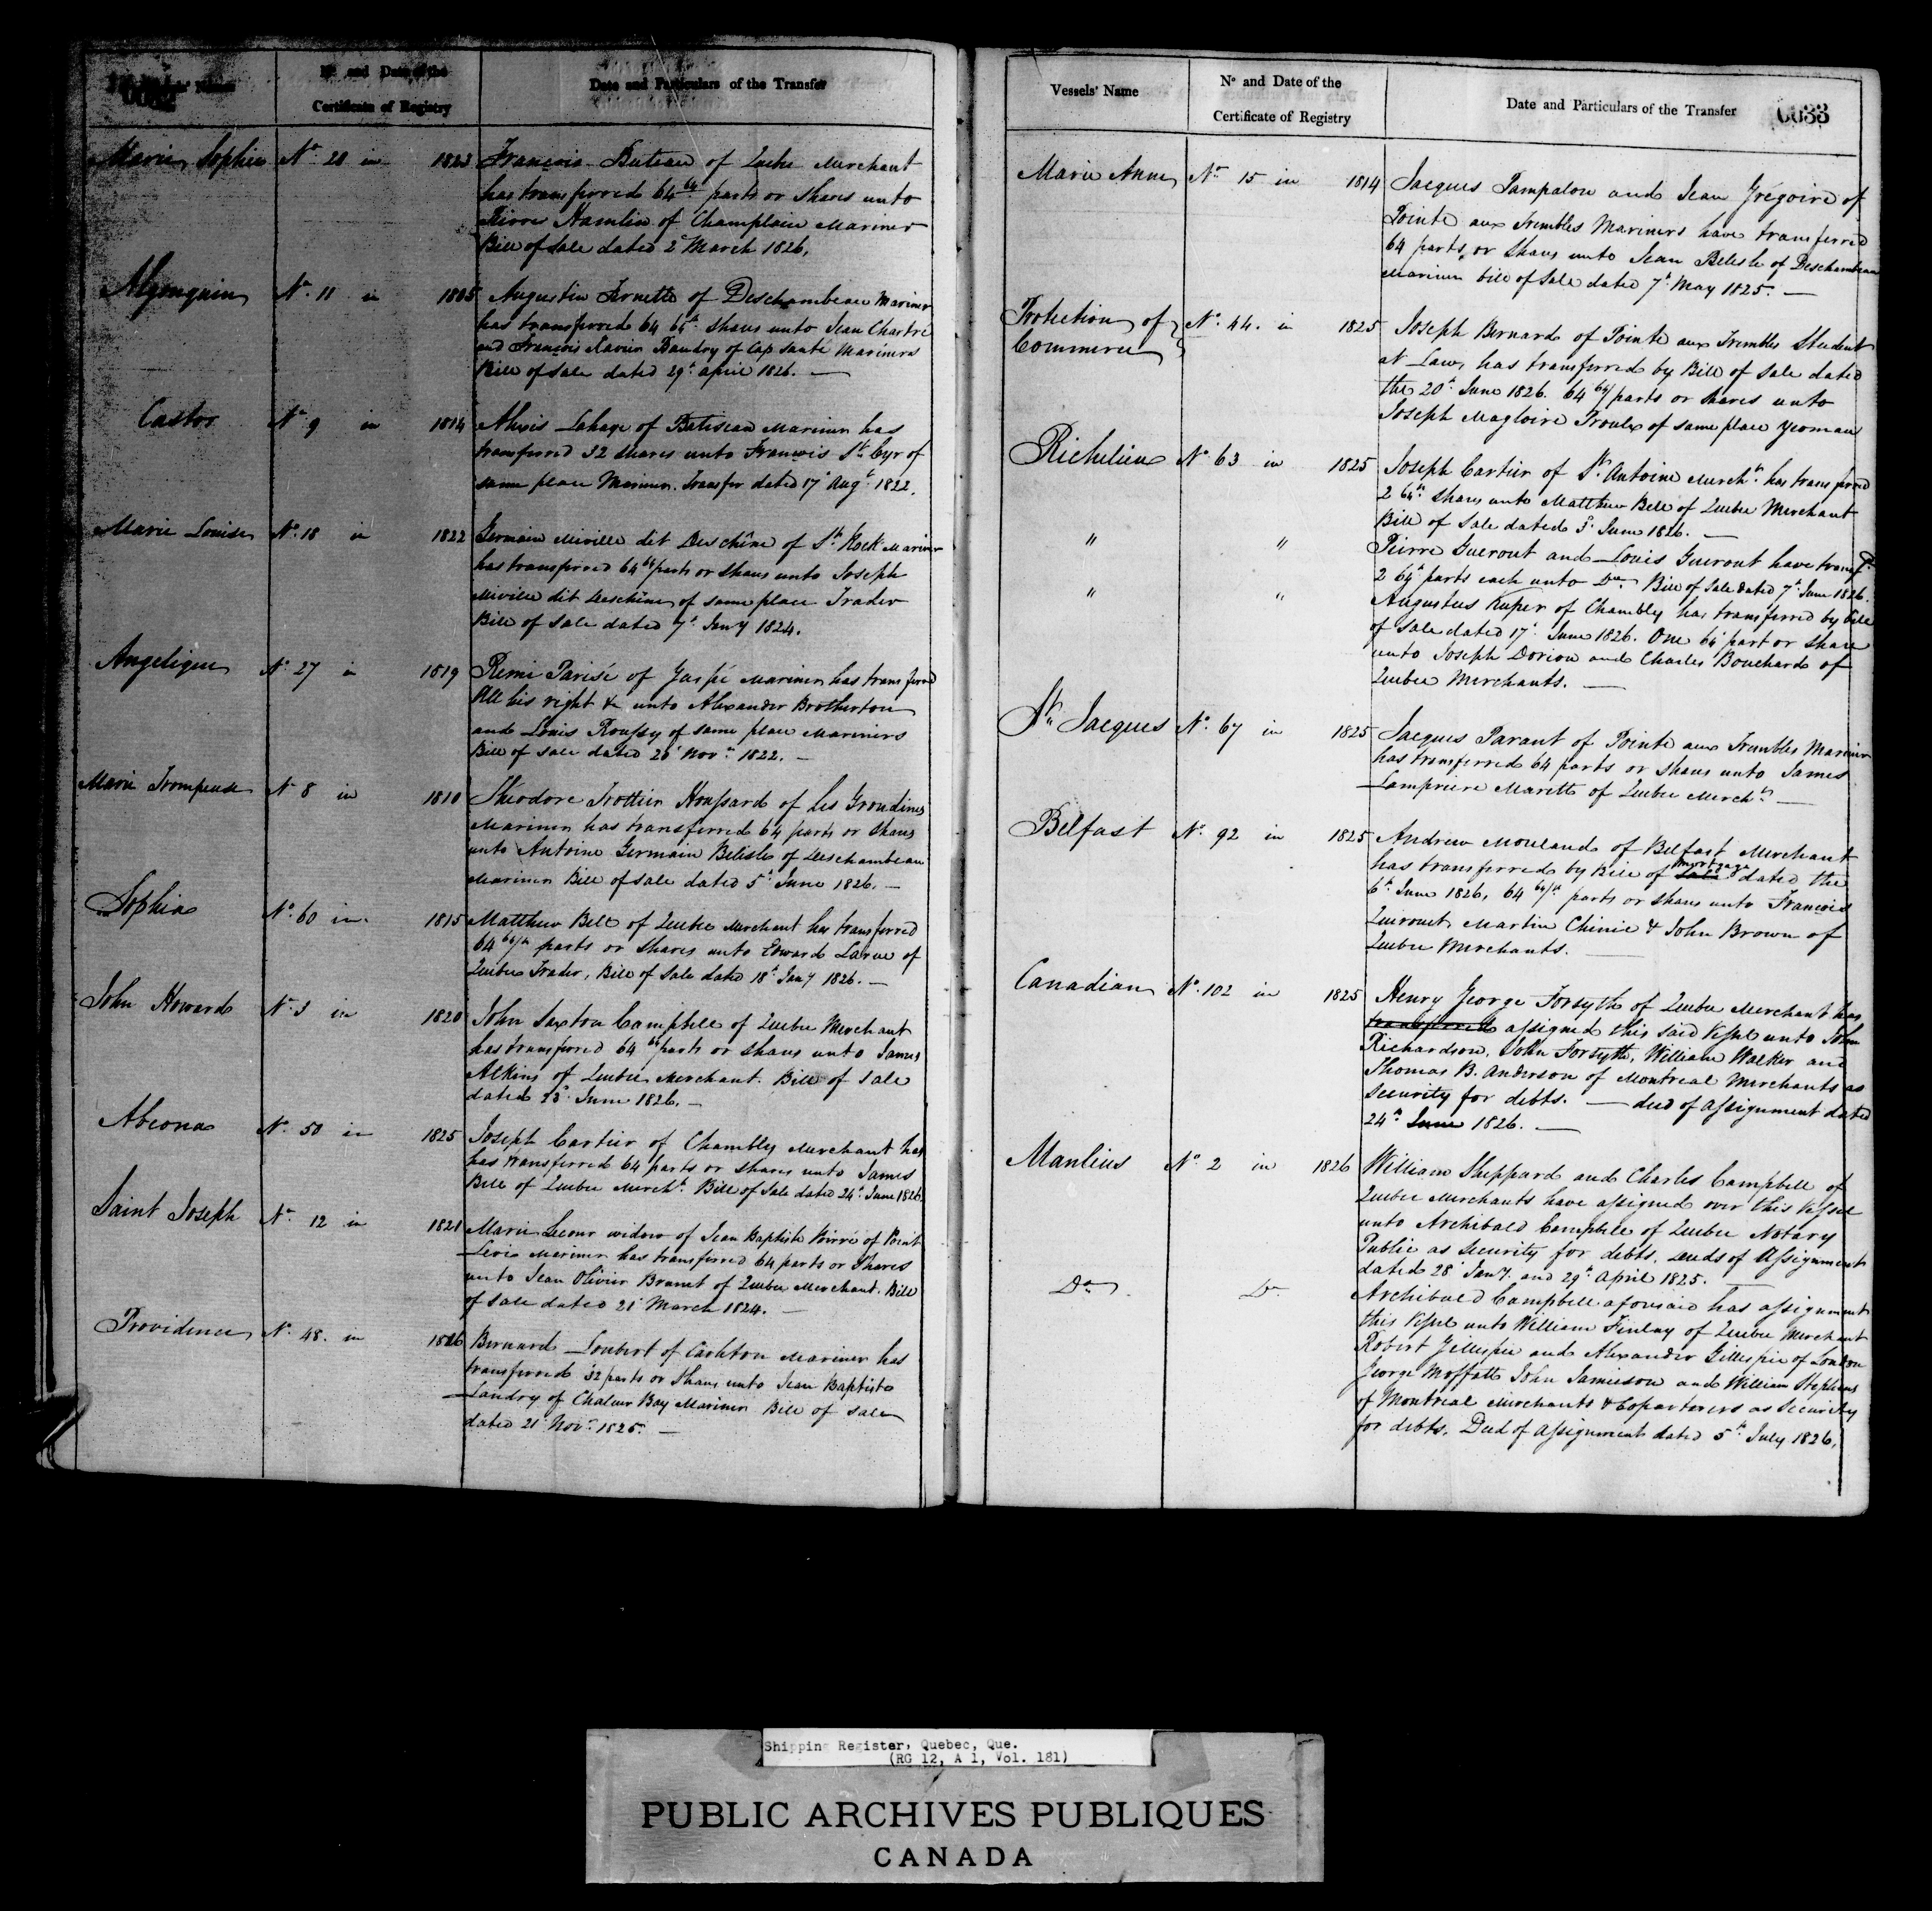 Vessels' Name
No and Date of the
Certificate of Registry
Date and Particulars of the Transfer
Marie Sophie No 28 in 1823 François Buteau of Quebec Merchant
has transferred 64 64th parts or shares unto
Pierre Hamlin of Champlain Mariner
Bill of Sale dated 2d March 1826.
Algonquin No 11 in 1805 Augustin Arnette of Deschambeau Mariner
has transferred 64 64th shares unto Jean Chartre
and François Xavier Baudry of Cap Santé Mariners
Bill of sale dated 29th april 1826. —
Castor No 9 in 1814 Alexis Lahaye of Batiscan Mariner has
transferred 32 shares unto Francois St Cyr of
same place Mariner. Transfer dated 17th Augt 1822.
Marie Louise No 18 in 1822 Germain Miville dit Deschêne of St Rock Mariner
has transferred 64 64th parts or shares unto Joseph
Miville dit Deschêne of same place Trader
Bill of Sale dated 7th Jany 1824.
Angelique No 27 in 1819 Remi Parisé of Gaspé Mariner has transferred
All his right &c unto Alexander Brotherton
and Louis Roussy of same place Mariners
Bill of sale dated Novr 1822. —
Marie Trompeuse No 8 in 1810 Theodore Trottier Houssard of les Grondines
Mariner has transferred 64 parts or shares
unto Antoine Germain Belisle of Deschambeau
Mariner Bill of Sale dated 5th June 1826. —
Sophia No 60 in 1815 Matthew Bell of Quebec Merchant has transferred
64 64/th parts or shares unto Edward Larue of
Quebec Trader, Bill of Sale dated 18th Jany 1826. —
John Howard No 3 in 1820 John Saxton Campbell of Quebec Merchant
has transferred 64 64th parts or shares unto James
Atkins of Quebec Merchant. Bill of Sale
dated June 1826. —
Abeona No 50 in 1825 Joseph Cartier of Chambly Merchant has
has transferred 64 parts or shares unto James
Bell of Quebec Mercht. Bill of Sale dated 24th June 1826
Saint Joseph No 12 in 1821 Marie Lecour widow of Jean Baptiste Poirré of Point
Levi Mariner has transferred 64 parts or Shares
unto Jean Olivier Brunet of Quebec Merchant. Bill
of sale dated 21 March 1824. —
Providence No 48. in 1826 Bernard Loubert of Carleton Mariner has
transferred 32 parts or Shares unto Jean Baptiste
Landry of Chaleur Bay Mariner Bill of sale
dated 21 Novr 1825. —
Vessels' Name
No and Date of the
Certificate of Registry
Date and Particulars of the Transfer 0033
Marie Anne No 15 in 1814 Jacques Pampalon and Jean Grégoire of
Pointe aux Trembles Mariners have transferred
64 parts or Shares unto Jean Belisle of Deschambeau
Mariner bill of Sale dated 7th May 1825. —
Protection of No 44. in 1825 Joseph Bernard of Pointe aux Trembles Student
Commerce at Law, has transferred by Bill of Sale dated
the 20th June 1826. 64 64/ parts or shares unto
Joseph Magloire Proulx of same place Yeoman
Richelieu No 63 in 1825 Joseph Cartier of St Antoine Mercht has transferred
2 64th Shares unto Matthew Bell of Quebec Merchant
Bill of Sale dated 3d June 1826. —
" " Pierre Guerout and Louis Guerout have transfd
2 64th parts each unto Do Bill of Sale dated 7th June 1826.
" " Augustus Kuper of Chambly has transferred by bill
of Sale dated 17th June 1826. One 64th part or share
unto Joseph Dorion and Charles Bouchard of
Quebec Merchants. —
St Jacques No 67 in 1825 Jacques Parant of Pointe aux Trembles Mariner
has transferred 64 parts or shares unto James
Lampriere Marett of Quebec Mercht —
Belfast No 92 in 1825 Andrew Mouland of Belfast Merchant
mortgage
has transferred by Bill of Sale dated the
6th June 1826, 64 64/th parts or shares unto Francois
Quirouet, Martin Chinic & John Brown of
Quebec Merchants.
Canadian No 102 in 1825 Henry George Forsyth of Quebec Merchant has
transferred assigned this said Vessel unto John
Richardson, John Forsyth, William Walker and
Thomas B. Anderson of Montreal Merchants as
Security for debts. — deed of Assignment dated
24th June 1826. —
Manlius No 2 in 1826 William Sheppard and Charles Campbell of
Quebec Merchants have assigned over this Vessel
unto Archibald Campbell of Quebec Notary
Public as security for debts, deeds of Assignment
dated 28 Jany. and 29th April 1825. —
Do Do Archibald Campbell aforesaid has assignment
this Vessel unto William Finlay of Quebec Merchant
Robert Gillespie and Alexander Gillespie of London
George Moffatt John Jamieson and William Stephens
of Montreal Merchants & Copartners as Security
for debts. Deed of Assignment dated 5th July 1826.
Shipping Register, Quebec, Que.
(RG 12, A 1, Vol. 181)
PUBLIC ARCHIVES PUBLIQUES
CANADA